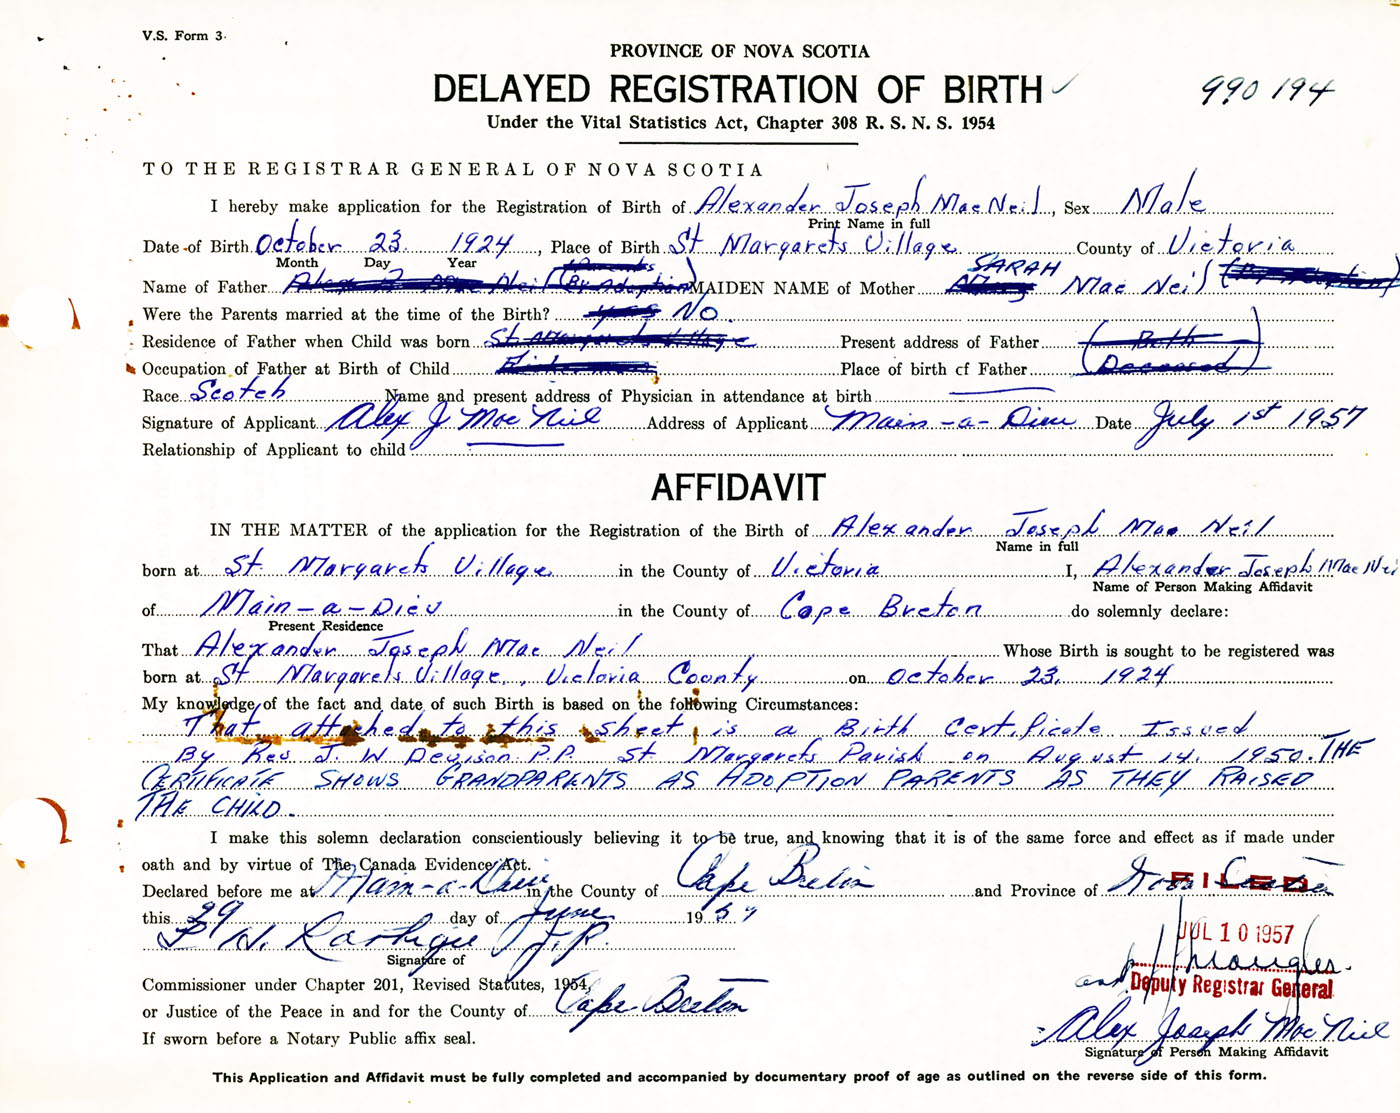 V.S. Form 3.
PROVINCE OF NOVA SCOTIA
DELAYED REGISTRATION OF BIRTH
990 194
Under the Vital Statistics Act, Chapter 308 R. S. N. S. 1954
TO THE REGISTRAR GENERAL OF NOVA SCOTIA
I hereby make application for the Registration of Birth of Alexander Joseph Mac Neil, Sex Male
Print Name in full
Date of Birth October 23. 1924, Place of Birth St Margarets Village County of Victoria
Month Day Year
Parents SARAH
Name of Father Neil (By Adoption) MAIDEN NAME of Mother Mac Neil
Were the Parents married at the time of the Birth? yes No.
Residence of Father when Child was born St Margarets Village Present address of Father (Both
Occupation of Father at Birth of Child Place of birth of Father Deceased)
Race Scotch Name and present address of Physician in attendance at birth
Signature of Applicant Alex J Mac Neil Address of Applicant Main-a-Dieu Date July 1st 1957
Relationship of Applicant to child
AFFIDAVIT
IN THE MATTER of the application for the Registration of the Birth of Alexander Joseph Mac Neil
Name in full
born at St. Margarets Village in the County of Victoria I, Alexander Joseph Mac Nei
Name of Person Making Affidavit
of Main-a-Dieu in the County of Cape Breton do solemnly declare:
Present Residence
That Alexander Joseph Mac Neil Whose Birth is sought to be registered was
born at St Margarets Village, Victoria County on October 23. 1924
My knowledge of the fact and date of such Birth is based on the following Circumstances:
That attached to this sheet is a Birth Certificate Issued
By Rev J. W Devison P.P. St. Margarets Parish on August 14. 1950. THE
CERTIFICATE SHOWS GRANDPARENTS AS ADOPTION PARENTS AS THEY RAISED
THE CHILD.
I make this solemn declaration conscientiously believing it to be true, and knowing that it is of the same force and effect as if made under
oath and by virtue of The Canada Evidence Act.
Declared before me at Main-a-Dieu in the County of Cape Breton and Province of Nova Scotia
FILED
this 29 day of June 1957
JUL 10 1957
J.P.
Signature of
Deputy Registrar General
Commissioner under Chapter 201, Revised Statutes, 1954,
or Justice of the Peace in and for the County of Cape Breton
Alex Joseph Mac Neil
If sworn before a Notary Public affix seal.
Signature of Person Making Affidavit
This Application and Affidavit must be fully completed and accompanied by documentary proof of age as outlined on the reverse side of this form.